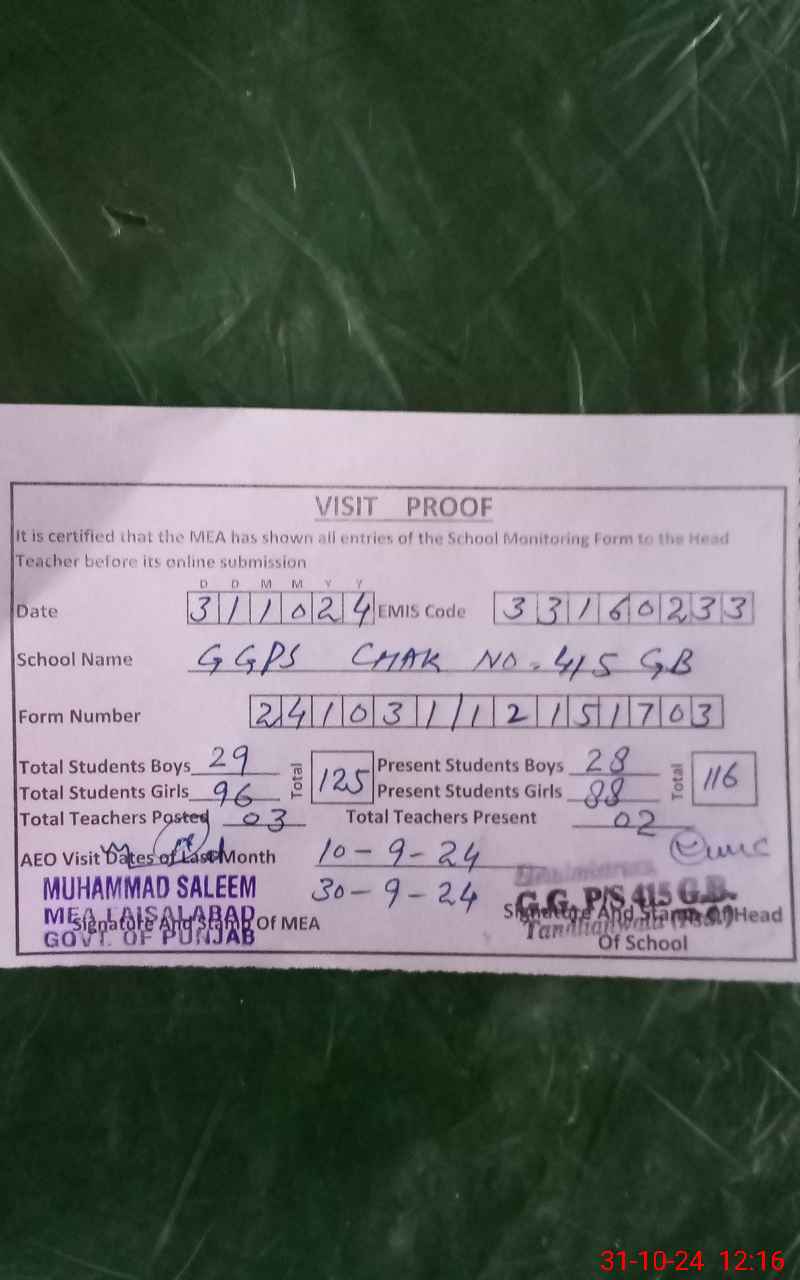 VISIT PROOF
It is certified that the MEA has shown all entries of the School Monitoring Form to the Head
Teacher before its online submission
D D M M Y Y
Date 311024 EMIS Code 33160233
School Name GGPS CHAK NO. 415 GB
Form Number 241031112151703
Total Students Boys 29 Total 125 Present Students Boys 28 Total 116
Total Students Girls 96 Present Students Girls 88
Total Teachers Posted 03 Total Teachers Present 02
AEO Visit Dates of Last Month 10-9-24
30-9-24
MUHAMMAD SALEEM
MEA FAISALABAD
GOVT. OF PUNJAB
Signature And Stamp Of MEA
G.G. P/S 415 G.B.
Signature And Stamp Of Head
Of School
31-10-24 12:16